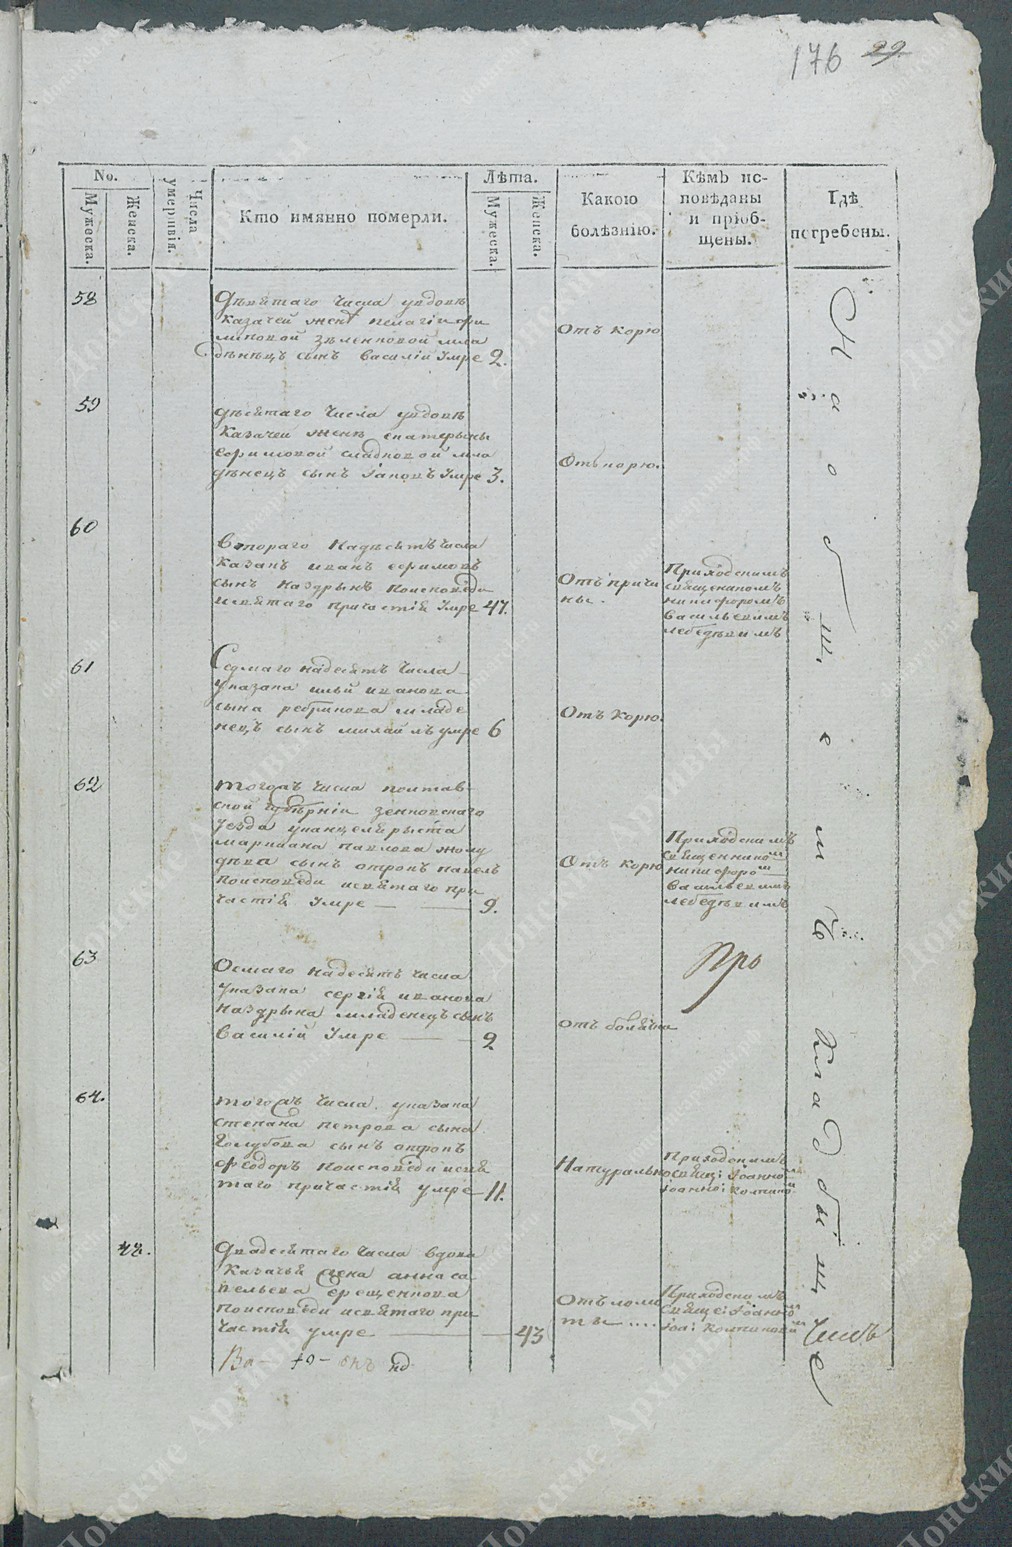 176 29
No.
Мужеска.
Женска.
Числа умершія.
Кто имянно померли.
Лѣта.
Мужеска.
Женска.
Какою
болѣзнію.
Кѣмъ ис-
повѣданы
и пріоб-
щены.
Гдѣ
погребены.
58
Девятаго числа увдовѣ
казачей жены пелагіи фи
липовой зеленковой мла
дѣнецъ сынъ василій умре 2.
Отъ корю
59
десятаго числа увдовѣ
казачей жены екатерыны
ефимовой сладковой мла
дѣнецъ сынъ Іаковъ умре 3.
Отъ корю.
60
второго надесять числа
казакъ иванъ ефимовъ
сынъ наздрынъ поисповѣди
исвятаго причастія умре 47.
Отъ причи
ны.
Приходскимъ
священикомъ
никифоромъ
васильевимъ
лебедѣвимъ
61
Седмаго надесять числа
указака ильи иванова
сына рябинова младе
нецъ сынъ михаилъ умре 6
Отъ корю.
62
тогожъ числа полтав
ской губѣрніи зенковскаго
уезда уканцеляриста
маркиана павлова
дѣва сынъ отрокъ павелъ
поисповѣди исвятаго при
частія умре — — 9.
Отъ корю
Приходскимъ
священником
никифором
васильевимъ
лебедѣвимъ
63
Осмаго надесять числа
указака сергія иванова
наздрына младенецъ сынъ
василій умре — — 2
Про
64.
тогожъ числа указака
степана петрова сына
голубова сынъ отрокъ
феодоръ поисповѣди исвя
таго причастія умре 11.
Натурально
Приходскимъ
свящ: Іоанно
42.
двадесятаго числа вдова
казачья жена анна са
вельева ерещенкова
поисповѣди исвятаго при
частія умре — — 43
Отъ ломо
ты ....
Приходскимъ
свяще: Іоанно
На обще мъ кладбище